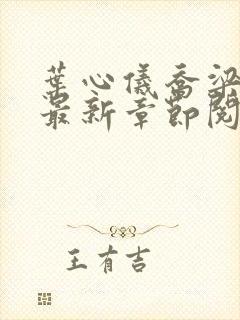 葉心儀喬梁
最新章節閱
王有吉